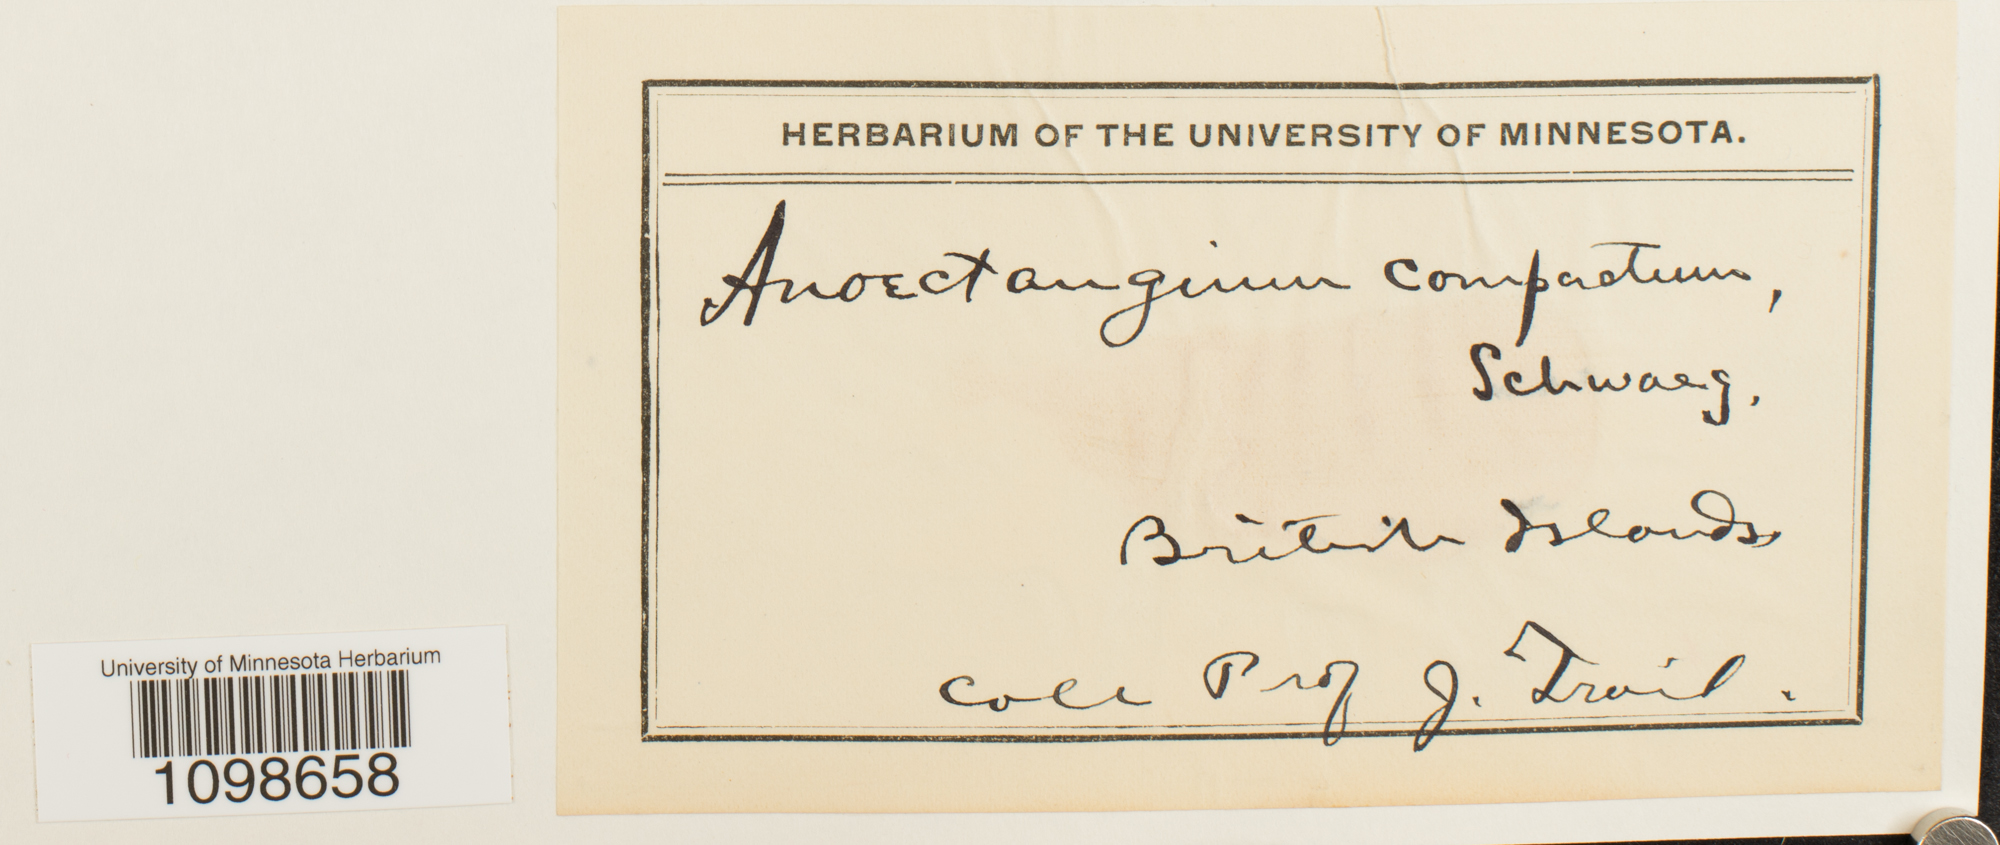 HERBARIUM OF THE UNIVERSITY OF MINNESOTA.
Anoectangium compactum,
Schwaeg.
British Islands
Coll Prof J. Trail.
University of Minnesota Herbarium
1098658